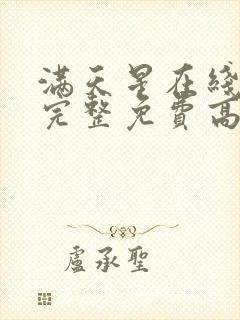 满天星在綫
完整免費高
盧承聖